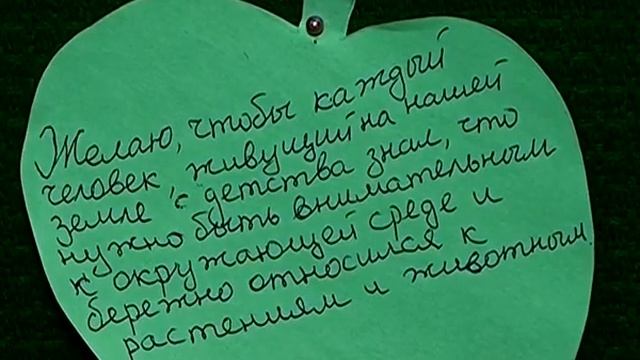 Желаю, чтобы каждый
человек, живущий на нашей
земле с детства знал, что
нужно быть внимательным
к окружающей среде и
бережно относился к
растениям и животным.